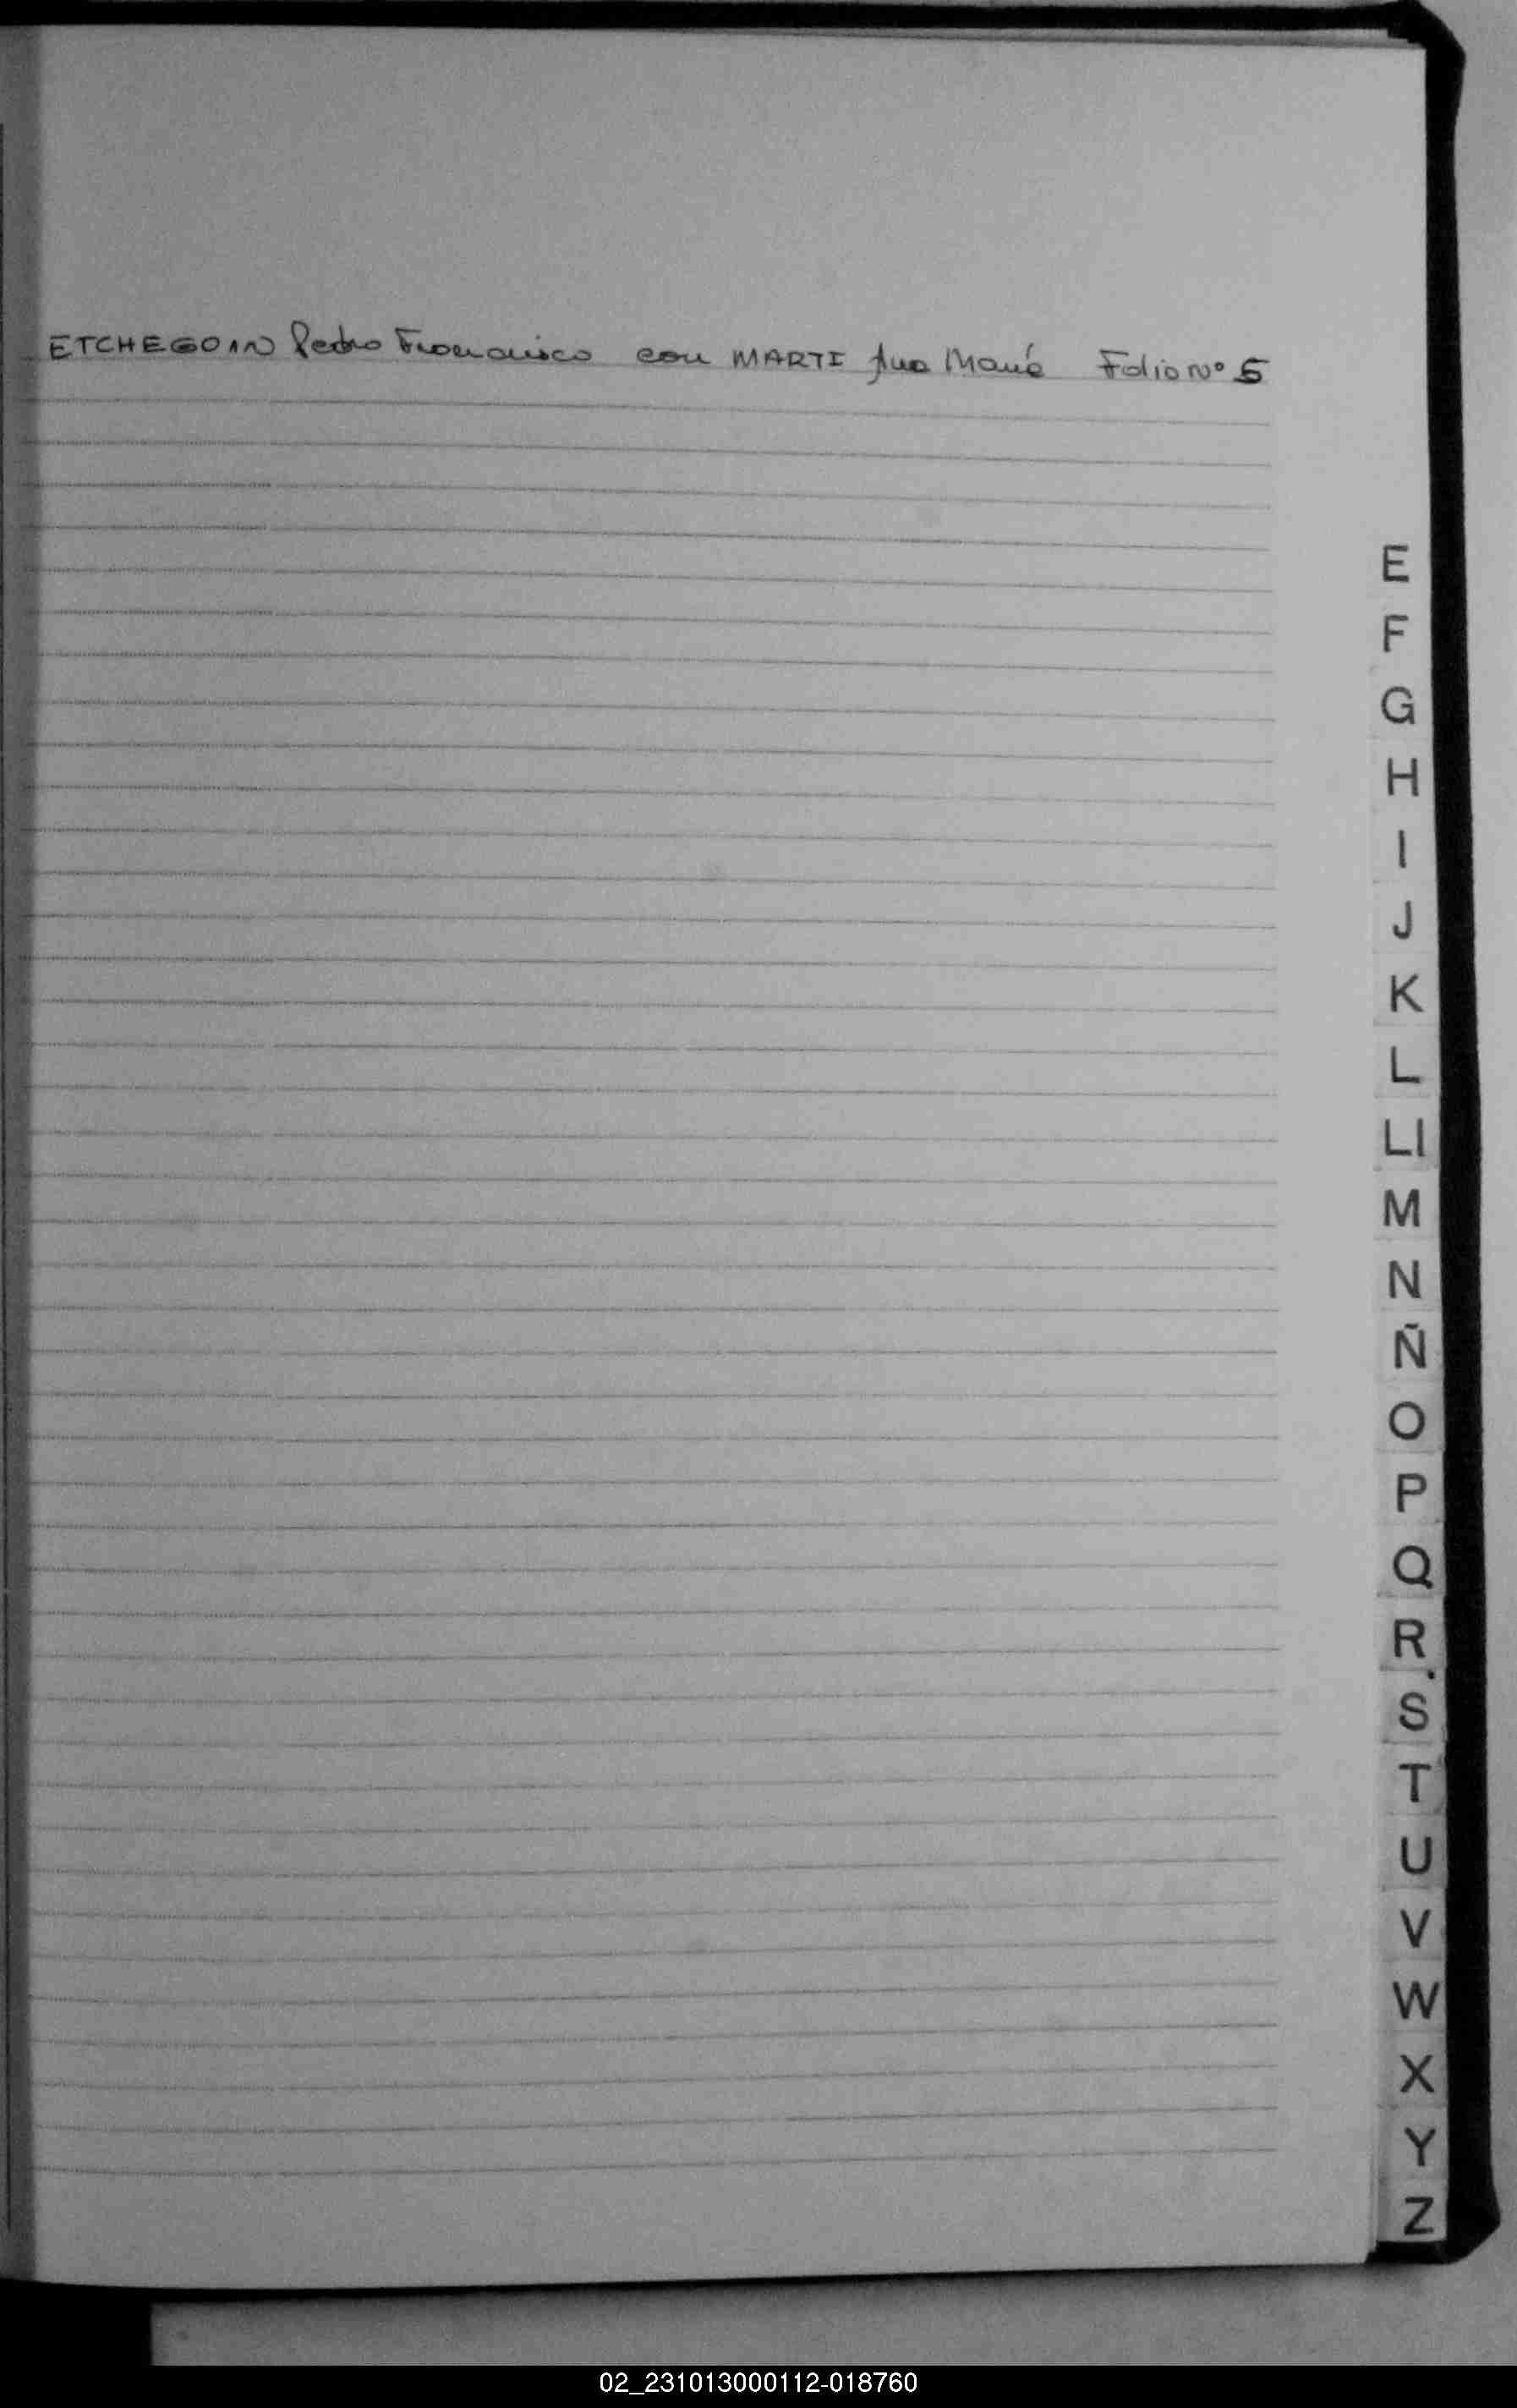 ETCHEGOIN Pedro Francisco con MARTI Ana María Folio Nº 5
E
F
G
H
I
J
K
L
Ll
M
N
Ñ
O
P
Q
R
S
T
U
V
W
X
Y
Z
02_231013000112-018760